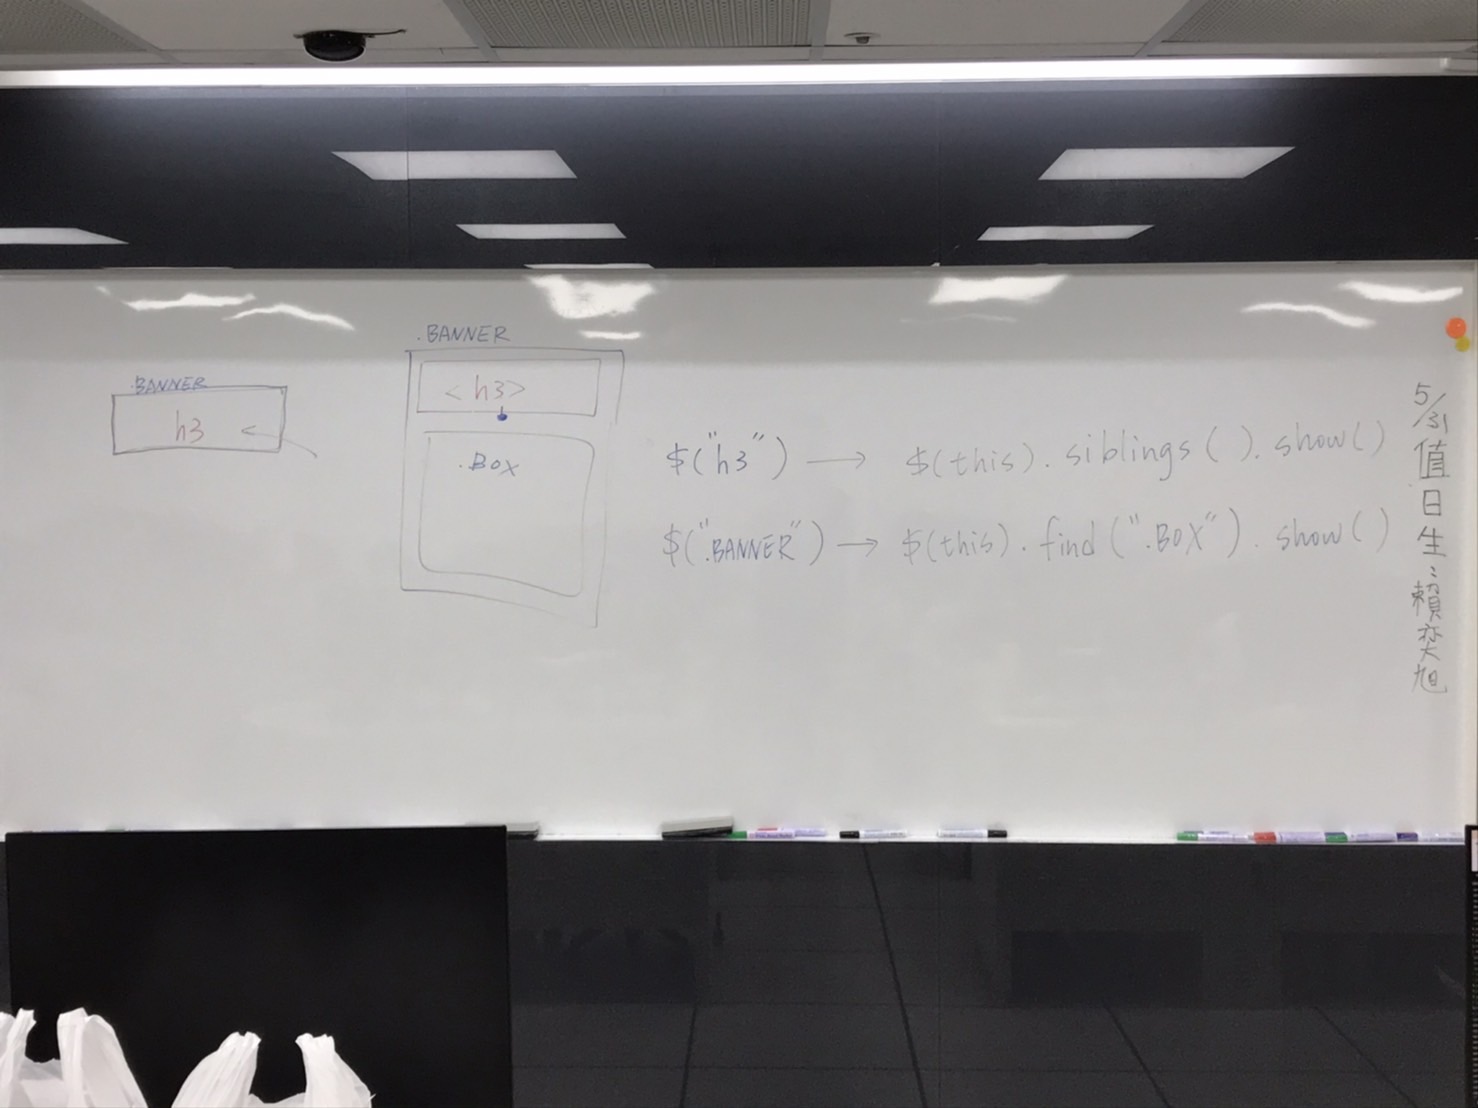 .BANNER
h3
.BANNER
<h3>
.BOX
$("h3") → $(this).siblings().show()
$(".BANNER") → $(this).find(".BOX").show()
5/31值日生:賴奕旭